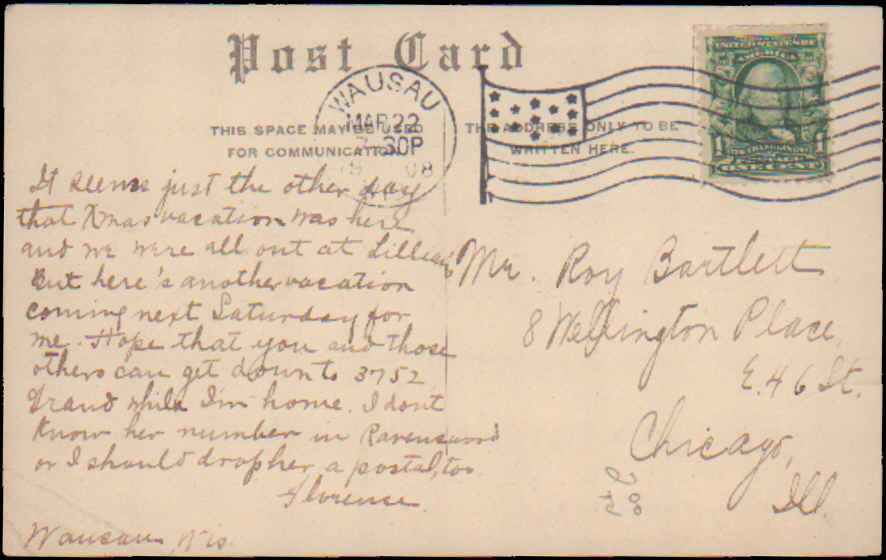 Post Card
THIS SPACE MAY BE USED
FOR COMMUNICATION
THE ADDRESS ONLY TO BE
WRITTEN HERE.
WAUSAU
MAR 22
30P
08
UNITED STATES OF
AMERICA
1
1
It seems just the other day
that Xmas vacation was here
and we were all out at Lillian's
but here's another vacation
coming next Saturday for
me. Hope that you and those
others can get down to 3752
Grand while I'm home. I don't
know her number in Ravenswood
or I should drop her a postal, too
Florence
Wausau Wis.
Mr. Roy Bartlett
8 Wellington Place,
E. 46 St.
Chicago,
Ill.